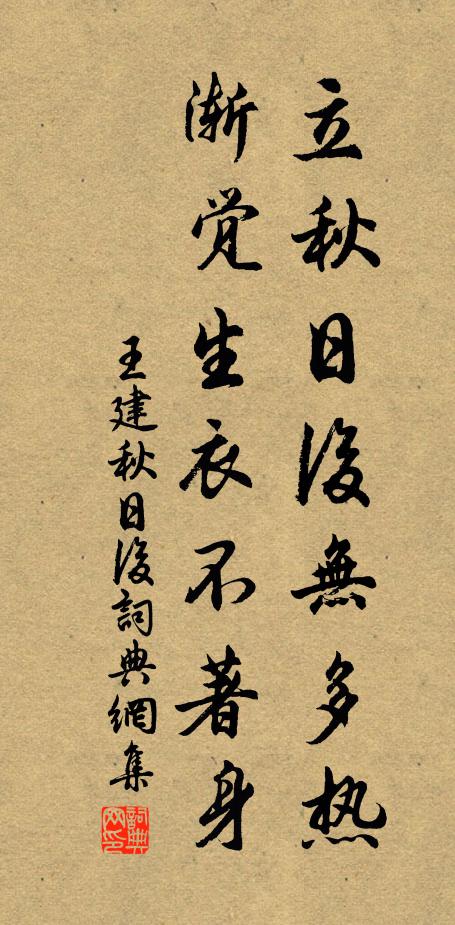 立秋日後無多热
漸觉生衣不著身
王建秋日後詞典網集
詞典网印